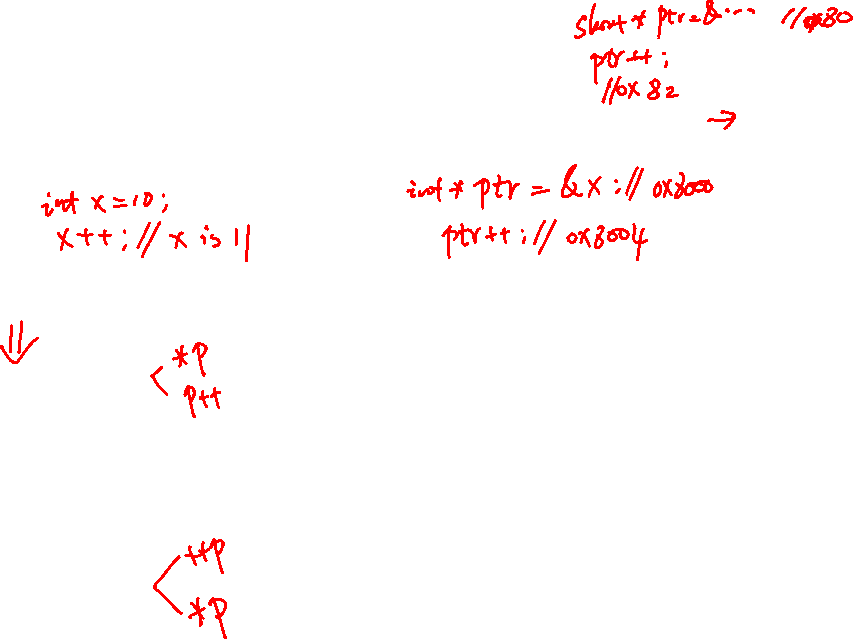 short * ptr = & ... //0x80
ptr++;
//0x82
→
int x=10;
x++; // x is 11
int * ptr = &x; // 0x8000
ptr++; // 0x8004
*p
p++
++p
*p